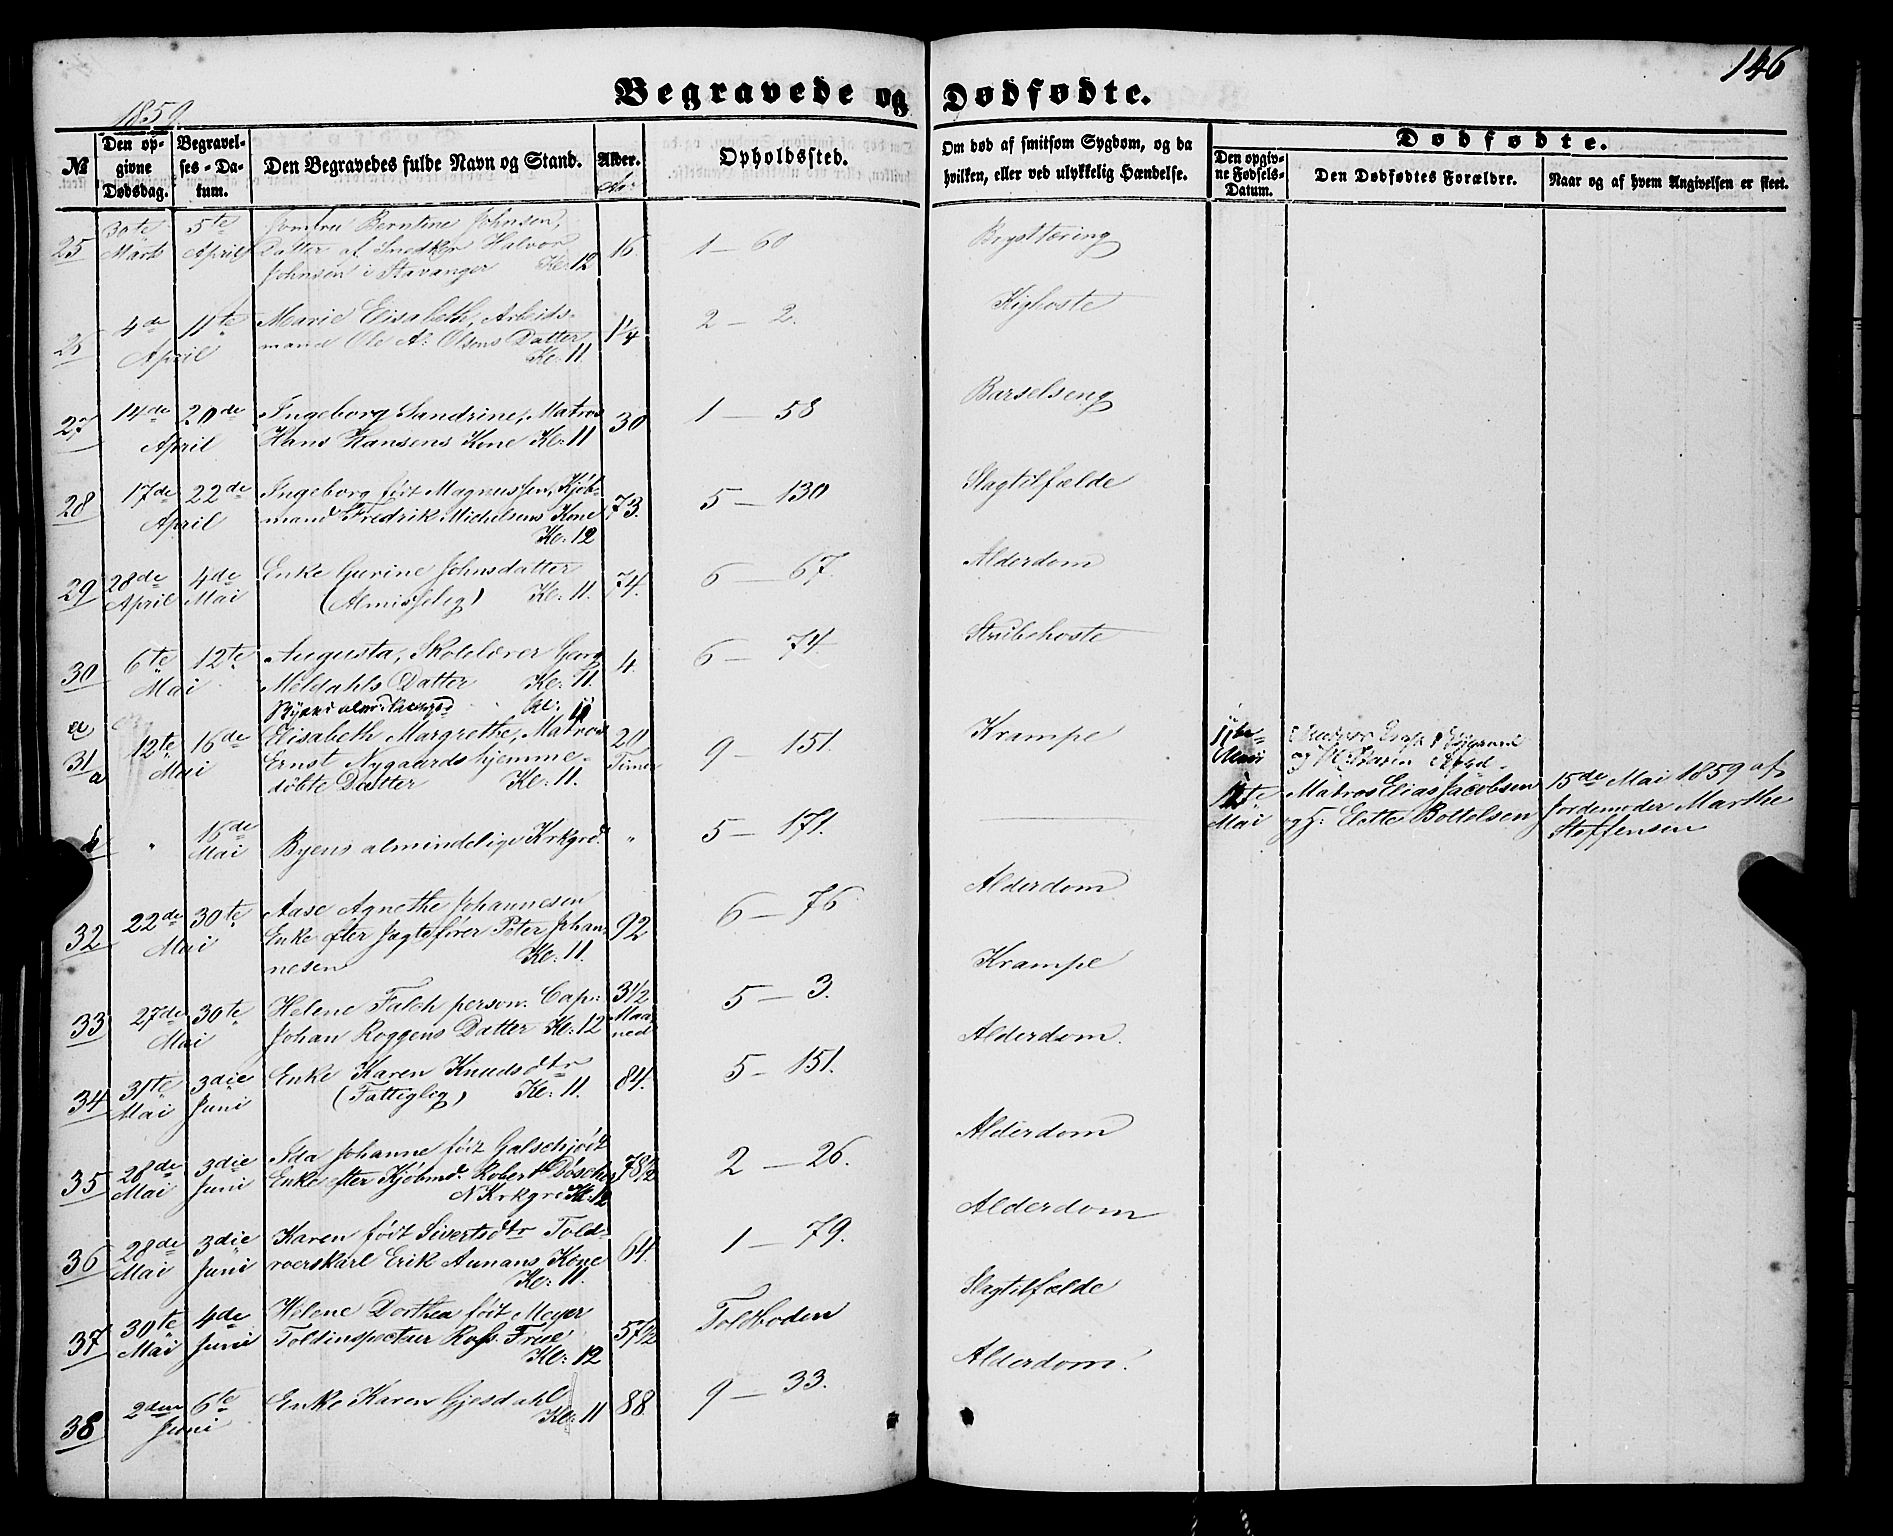 146
Begravede og Dødfødte.
1859.
№
Den opgivne Dødsdag.
Begravelses-Datum.
Den Begravedes fulde Navn og Stand.
Alder.
Aar
Opholdssted.
Om død af smitsom Sygdom, og da
hvilken, eller ved ulykkelig Hændelse.
Dødfødte.
Den opgivne Fødsels-Datum.
Den Dødfødtes Forældre.
Naar og af hvem Angivelsen er skeet.
25 30te Marts 5te April Jomfru Berntine Johnsen,
Datter af Snedker Halvor 16. 1 — 60 Brysttæring
Johnsen i Stavanger Kl: 12
26 4de 11te April Marie Elisabeth, Arbeids-
mand Ole A: Olsens Datter 1/4 2 — 2. Kighoste
Kl: 11.
27 14de 20de April Ingeborg Sandrine, Matros
Hans Hansens Kone Kl: 11 30 1 — 58 Barselseng
28 17de 22de April Ingeborg født Magnussen, Kjøb-
mand Fredrik Michelsens Kone 73. 5 — 130 Slagtilfælde
Kl: 12
29 28de April 4de Mai Enke Gurine Johnsdatter
(Almisselig) Kl: 11. 74. 6 — 67. Alderdom
30 6te 12te Mai Augusta, Skolelærer Georg
Meldahls Datter Kl: 11. 4. 6 — 74 Strubehoste
Kl: 11
31 a 12te 16de Mai Elisabeth Margrethe, Matros
Ernst Nygaards hjemme- 20 Timer 9 — 151. Krampe
døbte Datter Kl: 11.
11te Mai
b " 16de Mai Byens almindelige Krkgrd. " 5 — 171.
Mai Matros Elias Jacobsen
og H: Elette Bottelsen
15de Mai 1859 af
Jordemoder Marthe
Steffensen
32 22de 30te Mai Aase Agnethe Johannesen
Enke efter Jagtefører Peter Johan- 92 6 — 76 Alderdom
nesen Kl: 11.
33 27de 30te Mai Helene Falch person. Cap:
Johan Roggens Datter Kl: 12 3 1/2 Maaned 5 — 3. Krampe
34 31te Mai 3die Juni Enke Karen Knudsdtr
(Fattiglig) Kl: 11. 84. 5 — 151. Alderdom.
35 28de Mai 3die Juni Ida Johanne født Galschjøtt
Enke efter Kjøbmd. Robert Döscher 78 1/2 2 — 26. Alderdom
N Krkgrd Kl: 12
36 28de Mai 3die Juni Karen født Sivertsdtr Told-
roerskarl Erik Aunans Kone 64. 1 — 79. Alderdom
Kl: 11.
37 30te Mai 4de Juni Helene Dorthea født Meyer
Toldinspecteur Rass. Friis' 57 1/2 Toldboden Slagtilfælde
Kl: 12
38 2den 6te Juni Enke Karen Gjesdahl 88. 9 — 33. Alderdom.
Kl: 11